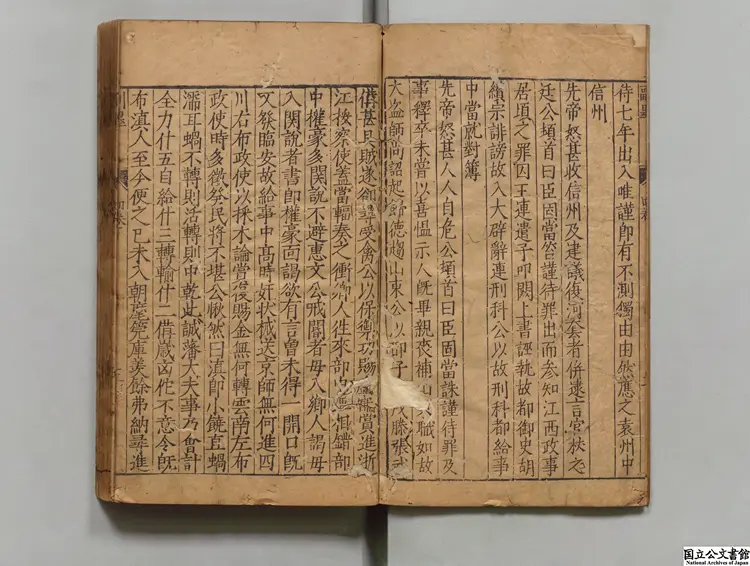 待七年出入唯謹即有不測獨由由然應之袁州中
信州
先帝怒甚收信州及建議復河套者併逮言官杖之
廷公頓首曰臣固當笞謹待罪出而參知江西政事
居頃之罪囚王連遣子叩闕上書誣執故都御史胡
纘宗誹謗故入大辟辭連刑科公以故刑科都給事
中當就對簿
先帝怒甚人人自危公頓首曰臣固當誅謹待罪及
事釋卒未嘗以喜慍示人旣畢親喪補山職如故
大盜師尚詔起歸德趨山東公以部子戍滕張
備甚具賊遂卻尋受禽公以保御功賜賞進浙
江按察使蓋當輻奏之衝鄉人徃來部無相錯部
中權豪多關說不避惠文公戒閽者毋入鄉人謁毋
入關說者書即權豪面謁欲有言曾未得一開口旣
又發臨安故給事中髙時奸狀械送京師無何進四
川右布政使以採木論當復賜金無何轉雲南左布
政使時多徴發民將不堪公愀然曰滇即小饒直蝸
濡耳蝸不轉則活轉則中乾此誠藩大夫事乃會計
全力什五自給什三轉輸什二備歲凶佗不意令旣
布滇人至今便之已未入朝筦庫羨餘弗納尋進
国立公文書館
National Archives of Japan